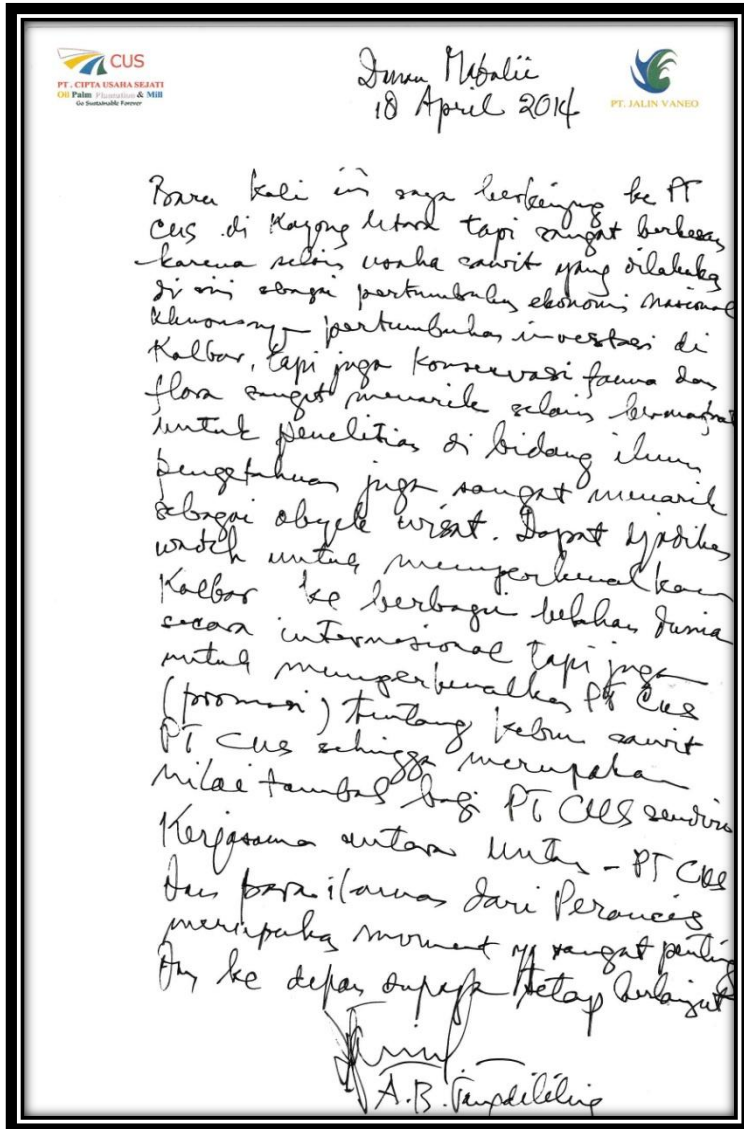 CUS
PT. CIPTA USAHA SEJATI
Oil Palm Plantation & Mill
Go Sustainable Forever
PT. JALIN VANEO
18 April 2014
Baru kali ini saya berkunjung ke PT
CUS di Kayong Utara tapi sangat berkesan
karena selain usaha sawit yang dilakukan
di sini sebagai pertumbuhan ekonomi nasional
khususnya pertumbuhan investasi di
Kalbar, tapi juga konservasi fauna dan
flora sangat menarik selain bermanfaat
untuk penelitian di bidang ilmu
pengetahuan juga sangat menarik
sebagai obyek wisat. Dapat dijadikan
untuk memperkenalkan
Kalbar ke berbagai belahan dunia
secara internasional tapi juga
untuk memperkenalkan PT CUS
(promosi) tentang kebun sawit
PT CUS sehingga merupakan
nilai tambah bagi PT CUS sendiri
Kerjasama antara Untan - PT CUS
dan para ilmuwan dari Perancis
merupakan moment yg sangat penting
dan ke depan supaya tetap berlanjut
A.B. Tangdililing